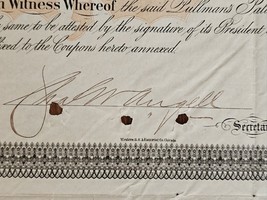 n Witness Whereof the said Pullman's Pala
same to be attested by the signature of its President
ffixed to the Coupons hereto annexed.
Angell
Secreta